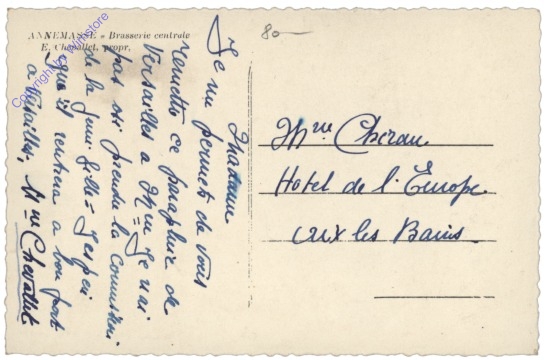 ANNEMASSE - Brasserie centrale
E. Chevallet, propr.
80-
Madame
Je me permets de vous
remettre ce parapluie de
Versailles à Mme Je n'ai
pas su prendre la
de la jeune fille - J'espère
que il rentrera a bon port
a Versailles. Mme Chevallet
Mme Cheran
Hotel de l'Europe
Aix les Bains.
Copyright by Wiinstore